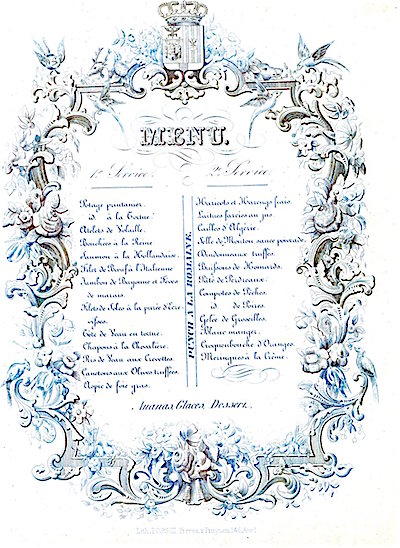 MENU.
1er Service.
Potage printanier.
id. à la Tortue.
Atelets de Volaille.
Bouchées à la Reine
Saumon à la Hollandaise.
Filet de Bœuf à l'Italienne
Jambon de Bayonne et Fèves
de marais.
Filets de Soles à la purée d'Écre-
visses.
Tête de Veau en tortue.
Chapons à la Chevalière.
Ris de Veau aux Crevettes.
Canetons aux Olives truffées.
Aspic de foie gras.
PUNCH A LA ROMAINE.
2e Service.
Haricots et Harengs frais.
Laitues farcies au jus.
Cailles d'Algérie.
Selle de Mouton sauce poivrade.
Dindonneaux truffés.
Buissons de Homards.
Pâté de Perdreaux.
Compotes de Pêches.
id. de Poires.
Gelée de Groseilles.
Blanc manger.
Croquenbouche d'Oranges.
Meringues à la Crème.
Ananas, Glaces, Dessert.
Lith.